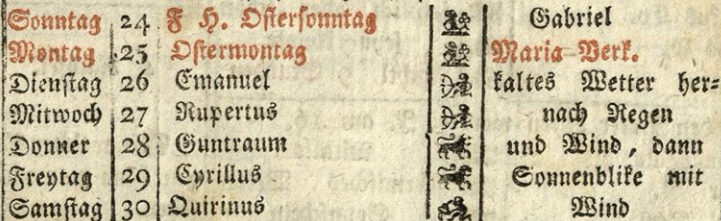 Sonntag 24 F H. Ostersonntag Gabriel
Montag 25 Ostermontag Maria Verk.
Dienstag 26 Emanuel kaltes Wetter her=
Mitwoch 27 Rupertus nach Regen
Donner 28 Guntraum und Wind, dann
Freytag 29 Cyrillus Sonnenblike mit
Samstag 30 Quirinus Wind